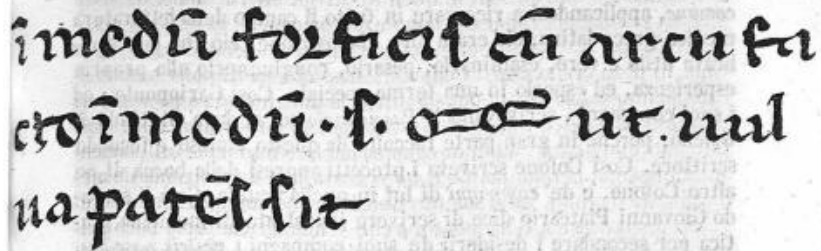 ī modū forficis cū arcu fa
cto ī modū · s · ut uul
ua patēs sit